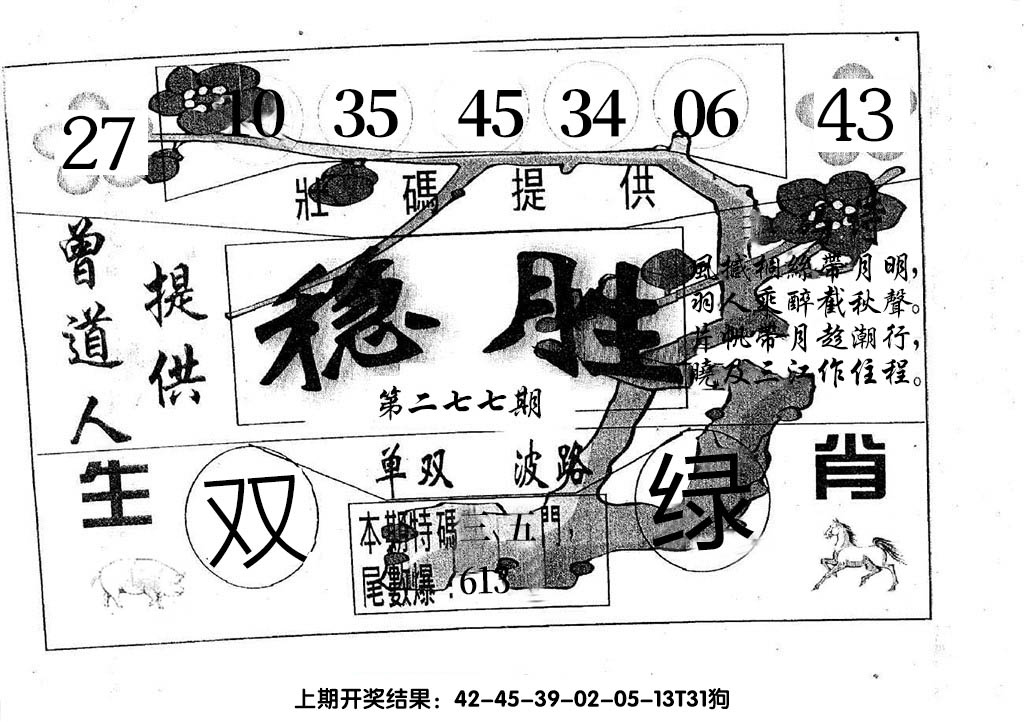 27 10 35 45 34 06 43
壯碼提供
曾道人
提供
稳胜
第二七七期
詩
風撼梱絲帶月明，
羽人乘醉截秋聲。
片帆帶月趁潮行，
曉及三江作住程。
生肖
双
单双 波路
绿
本期特碼三、五門，
尾數爆：613
上期开奖结果：42-45-39-02-05-13T31狗